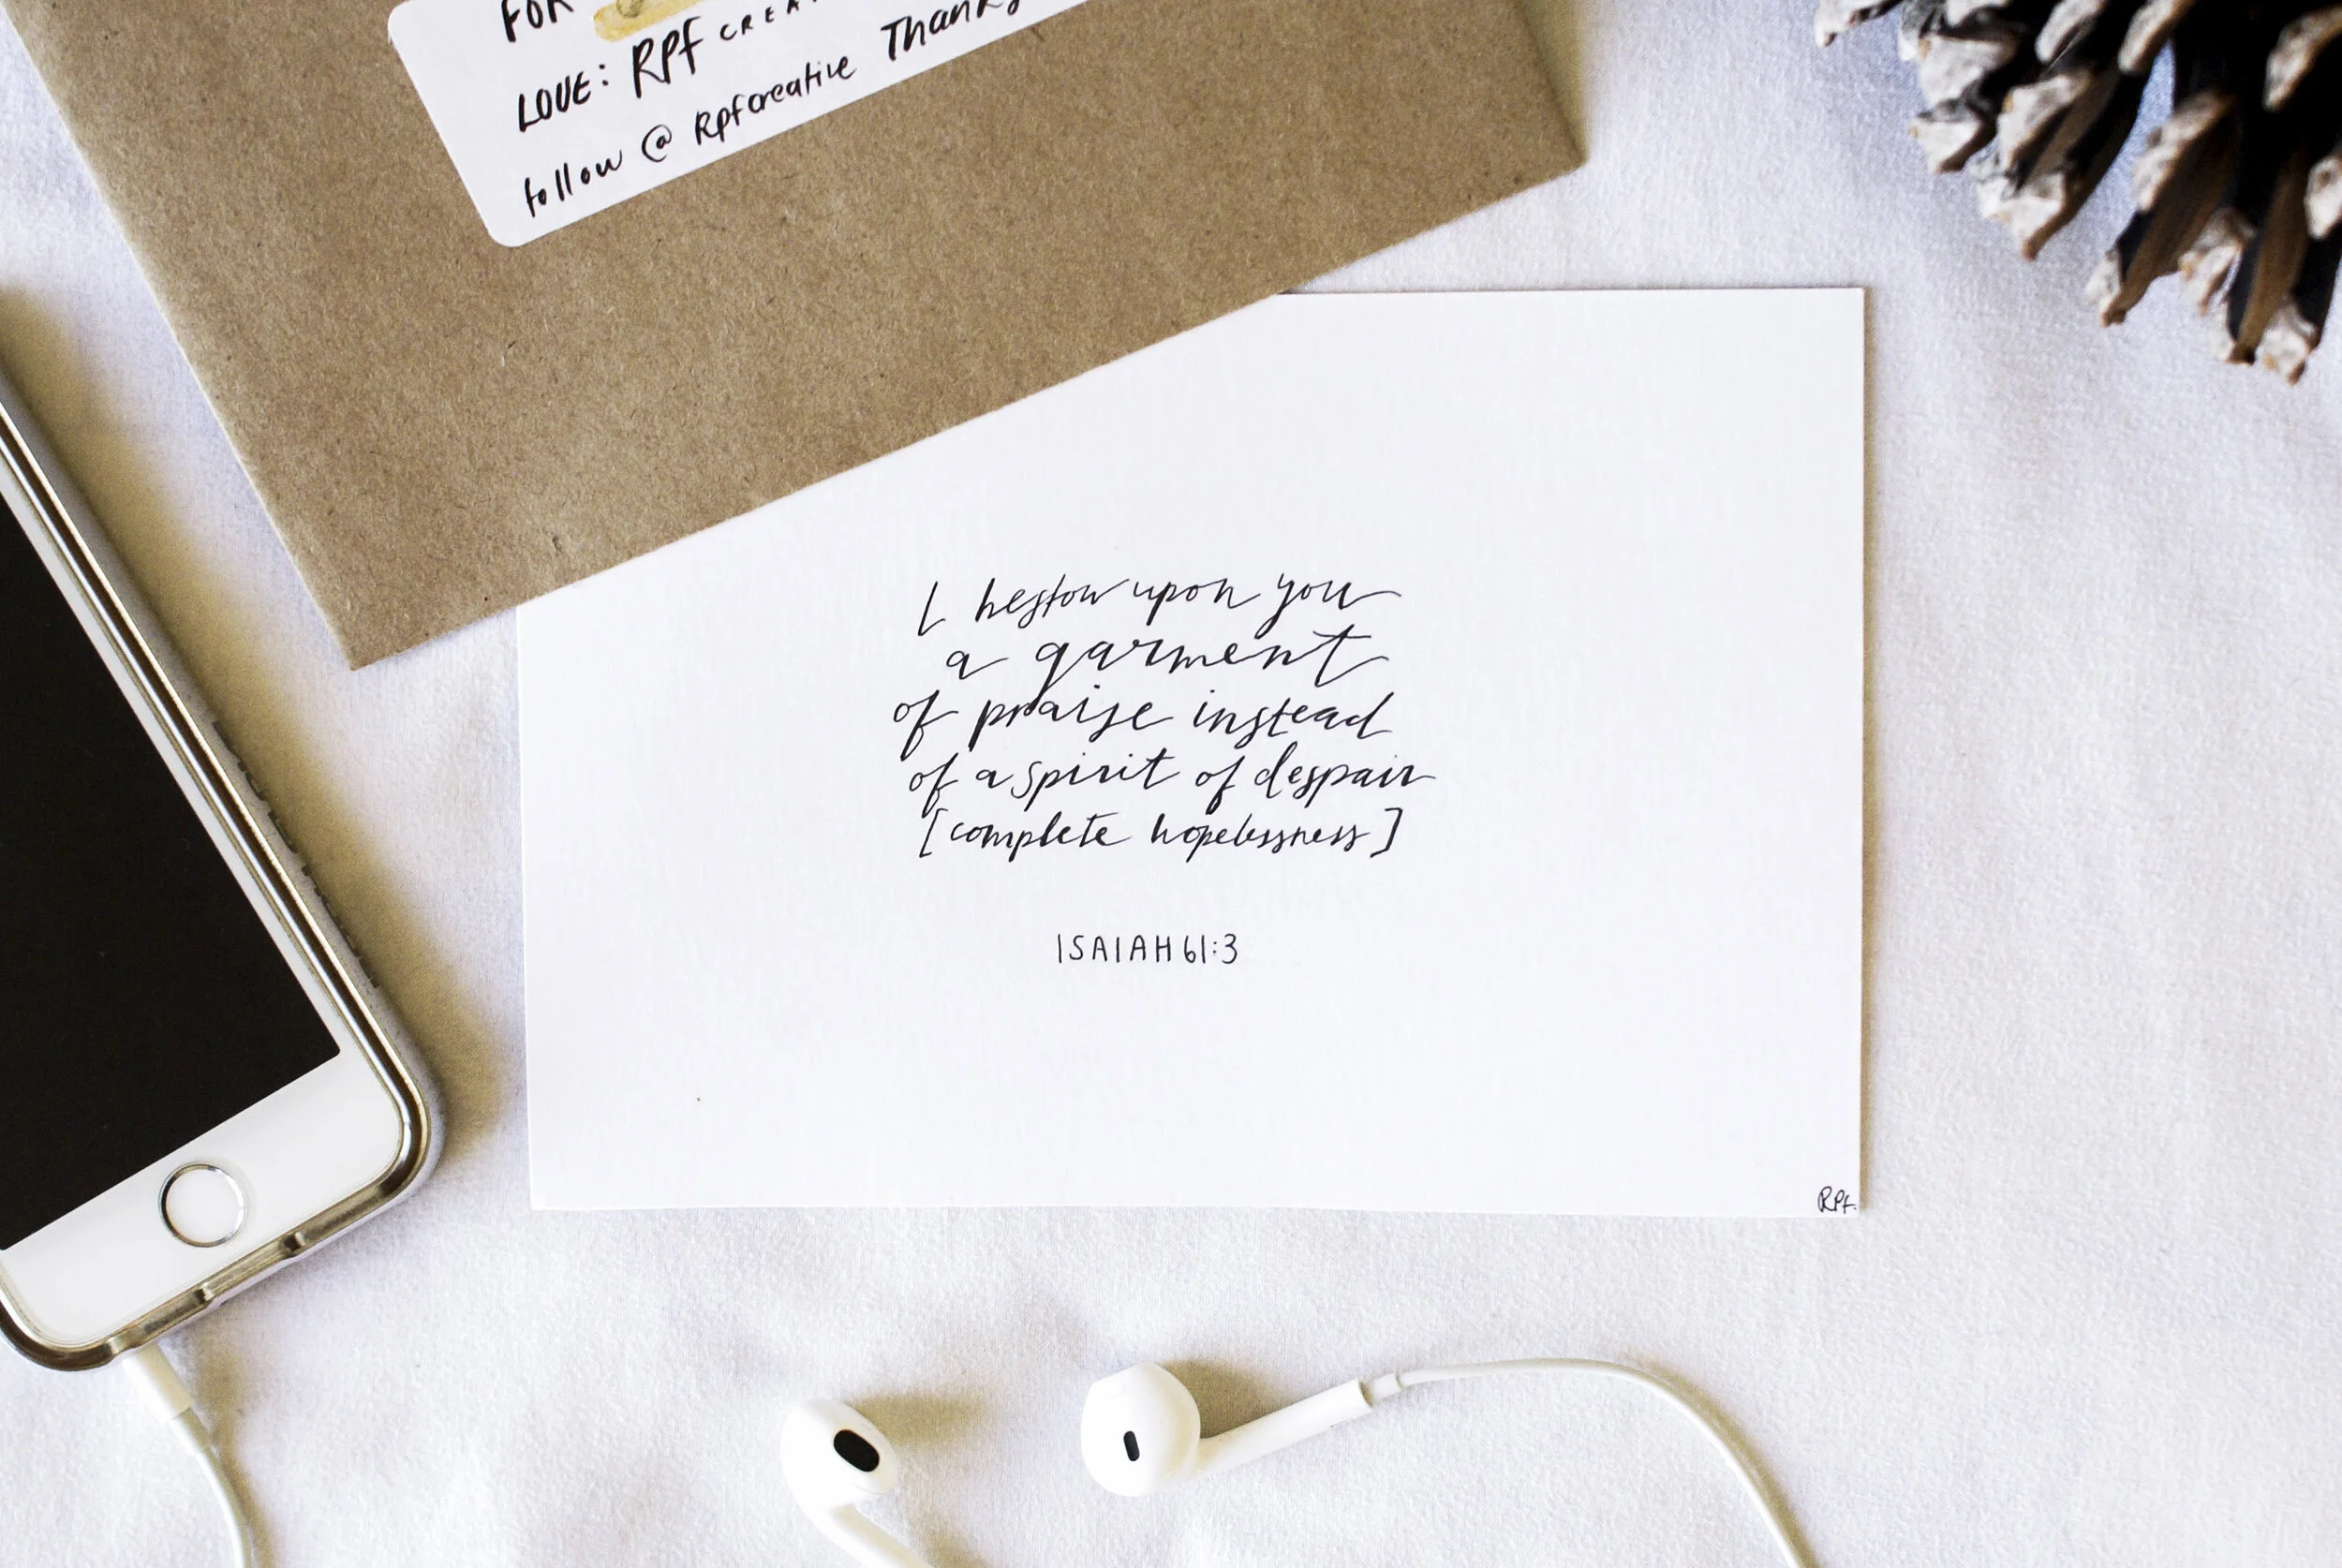 FOR
LOVE: RPF CREA
follow @ Rpfcreative Thank
I bestow upon you
a garment
of praise instead
of a spirit of despair
[complete hopelessness]
ISAIAH 61:3
RPf.